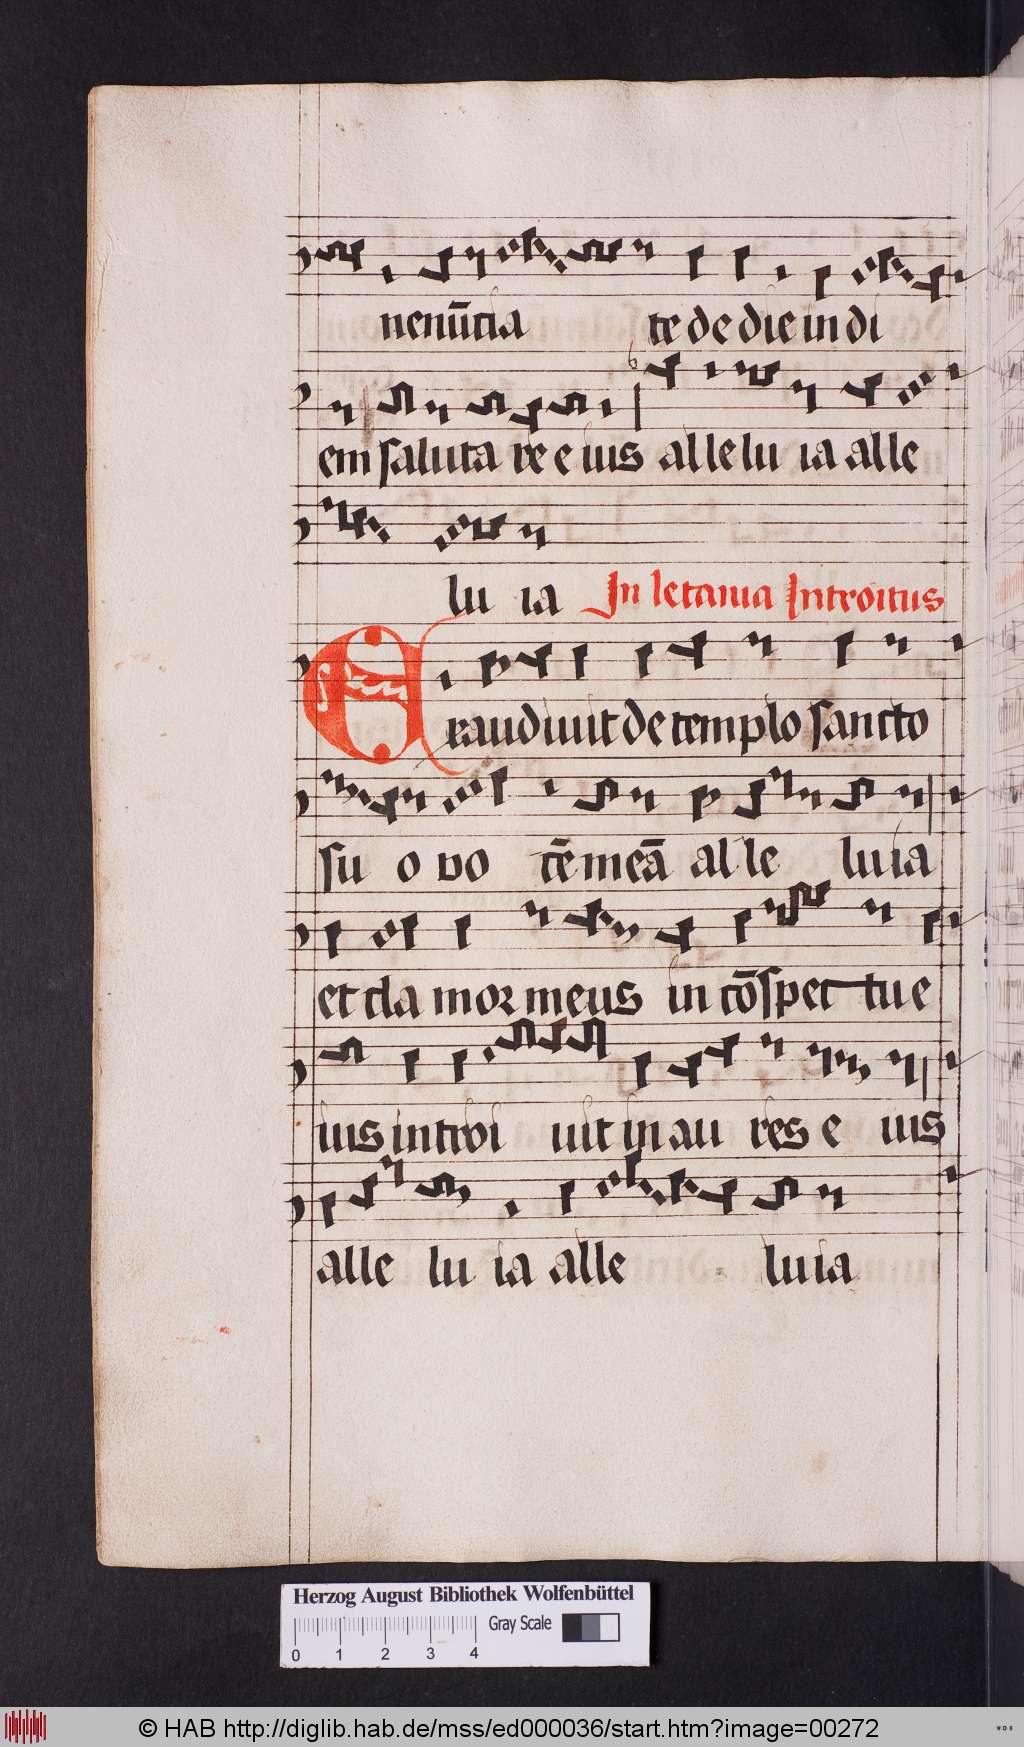 nenūcia te de die in di
em saluta re e ius alle lu ia alle
lu ia In letania Introitus
Exaudiuit de templo sancto
su o vo cē meā al le luia
et cla mor meus in cōspec tu e
ius introi uit in au res e ius
alle lu ia alle luia
Herzog August Bibliothek Wolfenbüttel
Gray Scale
0 1 2 3 4
© HAB http://diglib.hab.de/mss/ed000036/start.htm?image=00272